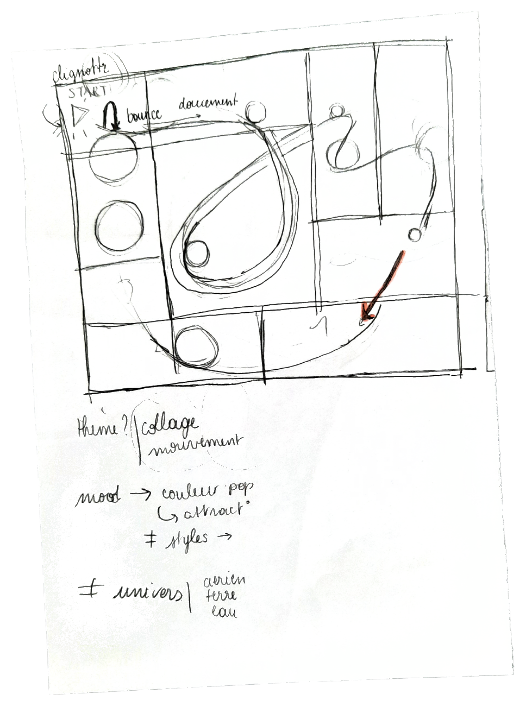 clignotte
START
bounce doucement
thème? collage
mouvement
mood → couleur pop
↳ attract°
≠ styles →
≠ univers aérien
terre
eau